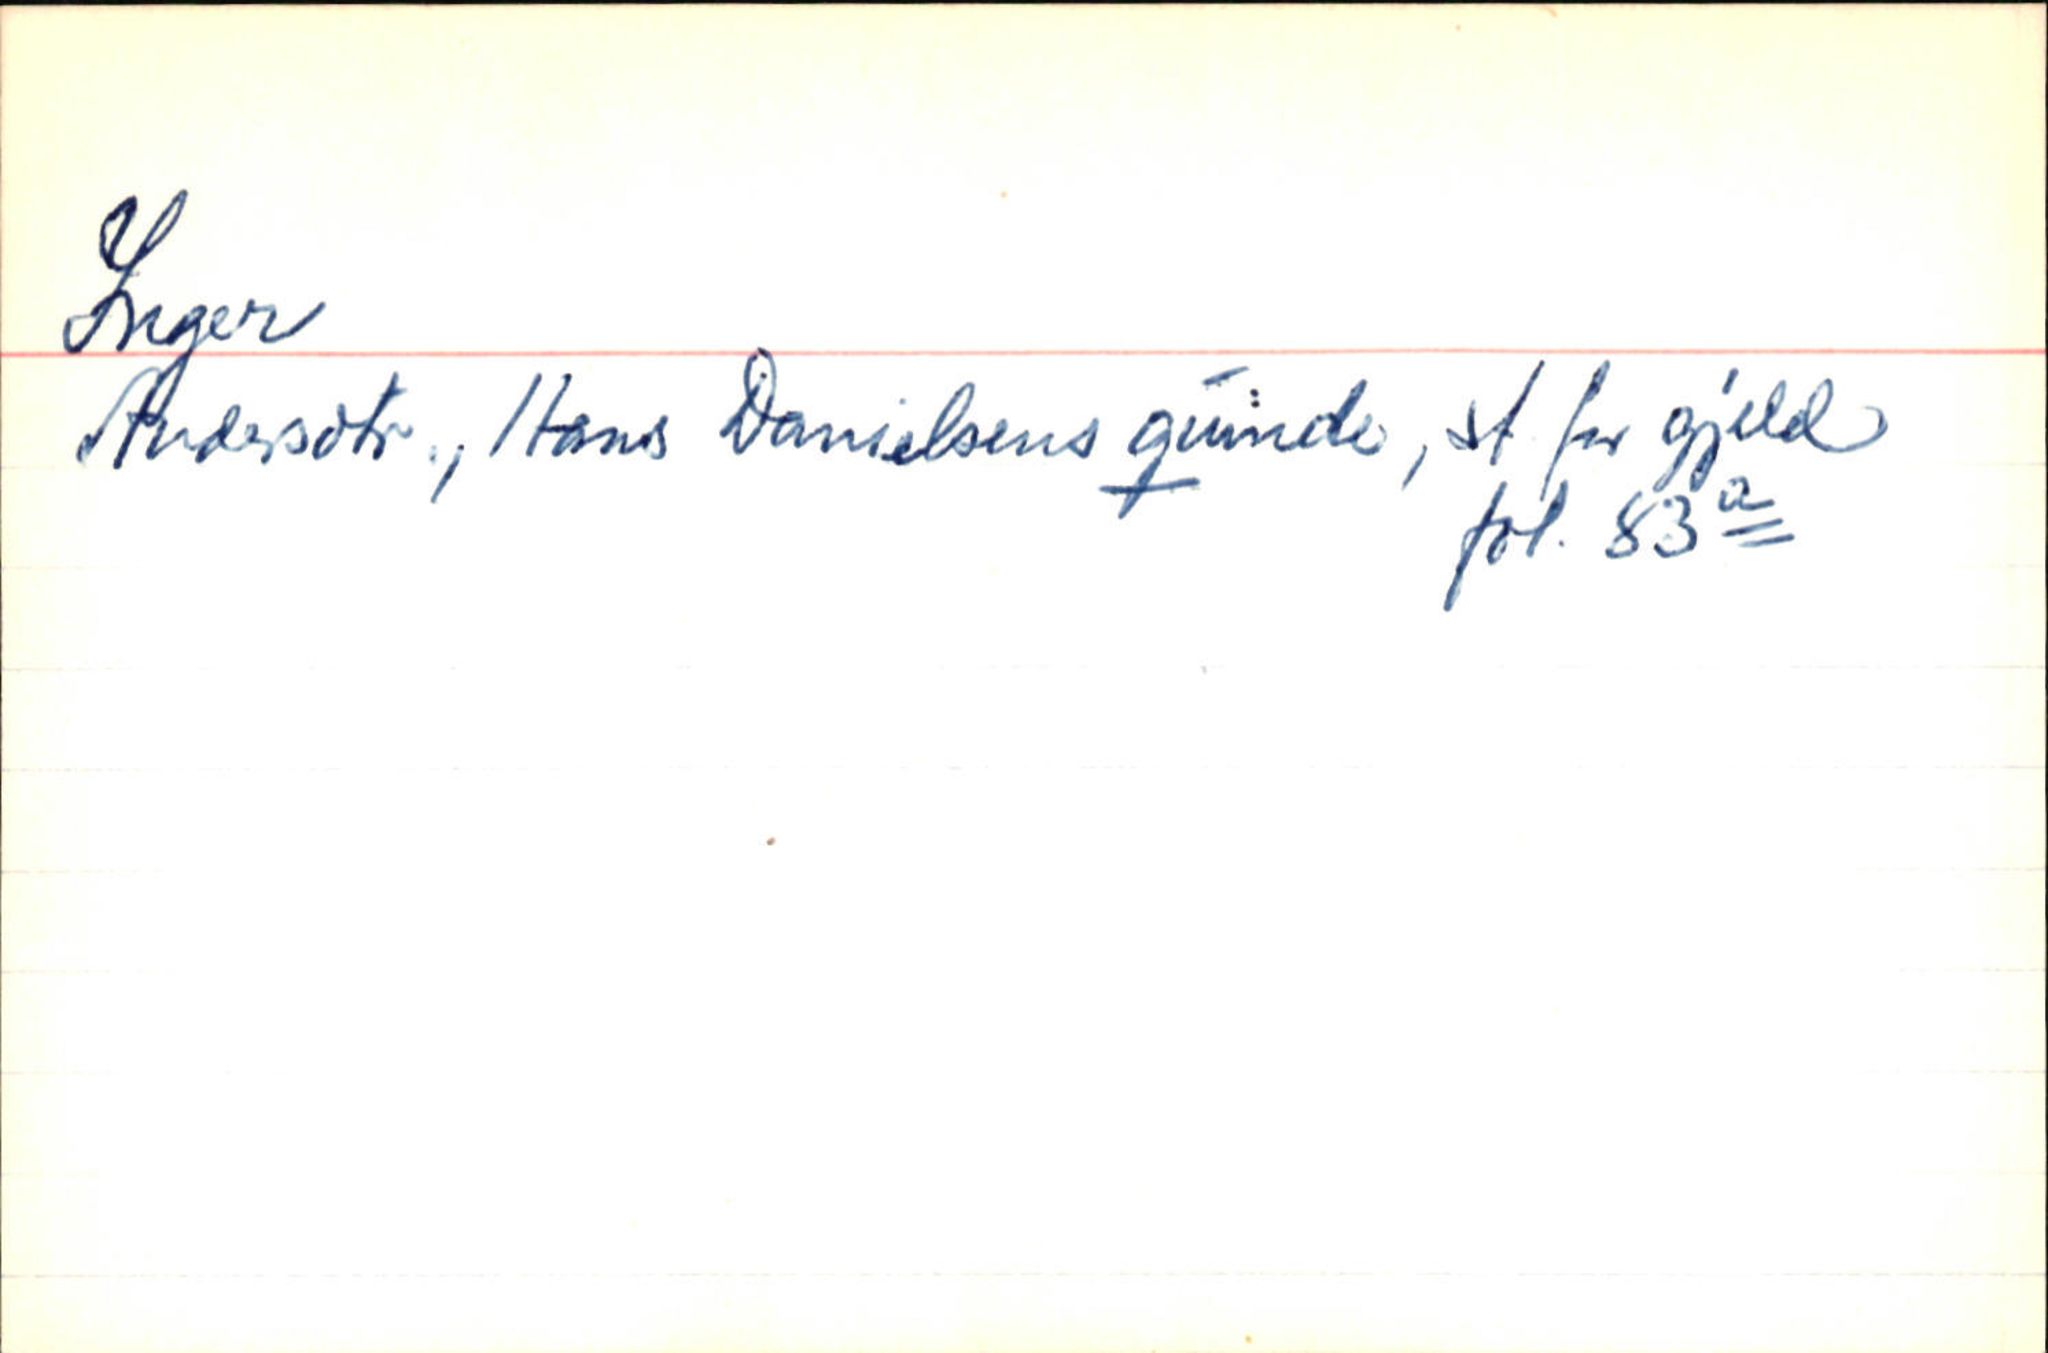 Inger
Andersdtr., Hans Danielsens quinde, st. for gjeld
fol. 83 a